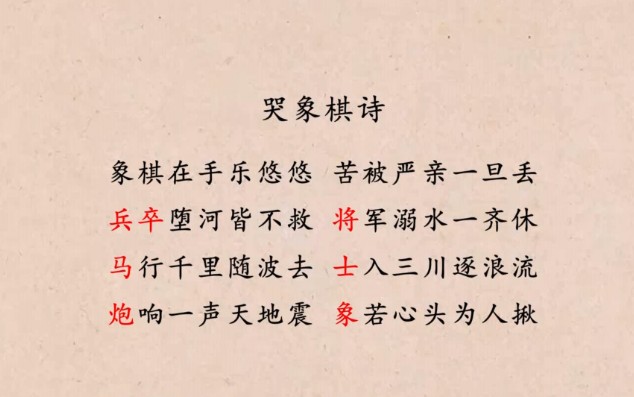 哭象棋诗
象棋在手乐悠悠 苦被严亲一旦丢
兵卒堕河皆不救 将军溺水一齐休
马行千里随波去 士入三川逐浪流
炮响一声天地震 象若心头为人揪